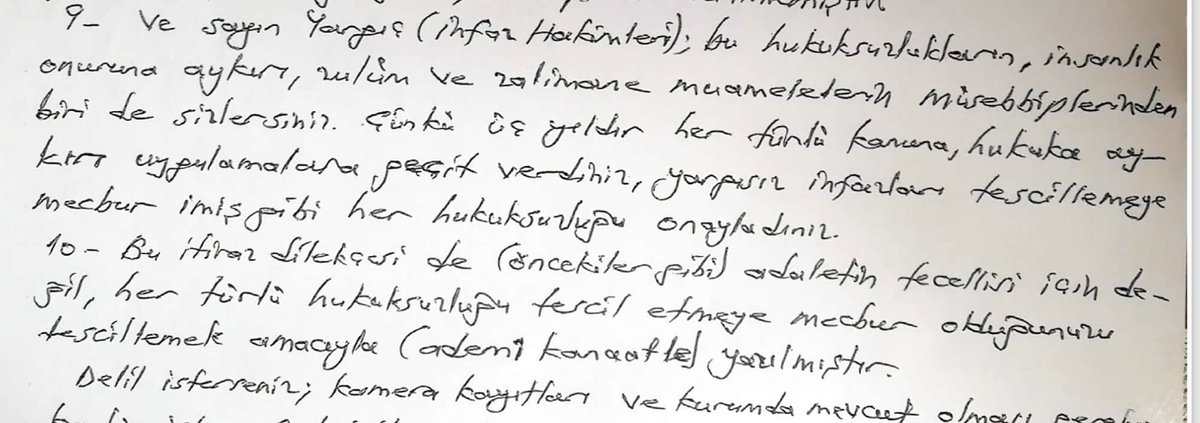 9- Ve sayın Yargıç (infaz Hakimleri); bu hukuksuzlukların, insanlık
onuruna aykırı, zulüm ve zalimane muamelelerin müsebbiplerinden
biri de sizlersiniz. Çünkü üç yıldır her türlü kanuna, hukuka ay-
kırı uygulamalara geçit verdiniz, yargısız infazları tescillemeye
mecbur imiş gibi her hukuksuzluğu onayladınız.
10- Bu itiraz dilekçesi de (öncekiler gibi) adaletin tecellisi için de-
ğil, her türlü hukuksuzluğu tescil etmeye mecbur olduğunuzu
tescillemek amacıyla (ademi kanaatle) yazılmıştır.
Delil isterseniz; kamera kayıtları ve kurumda mevcut olması